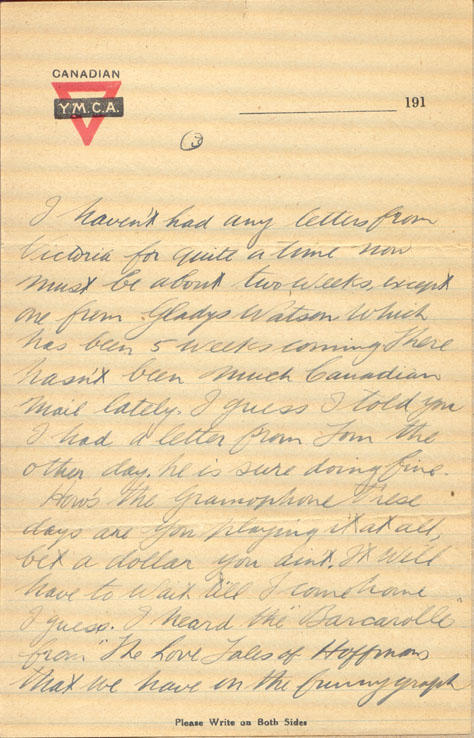 CANADIAN
Y.M.C.A.
191
3
I haven't had any letters from
Victoria for quite a time now
must be about two weeks, except
one from Gladys Watson which
has been 5 weeks coming. There
hasn't been much Canadian
mail lately. I guess I told you
I had a letter from Tom the
other day, he is sure doing fine.
How's the Gramophone these
days are you playing it at all,
bet a dollar you aint. It will
have to wait till I come home
I guess. I heard the "Barcarolle"
from "The Love Tales of Hoffman
that we have on the funnygraph
Please Write on Both Sides